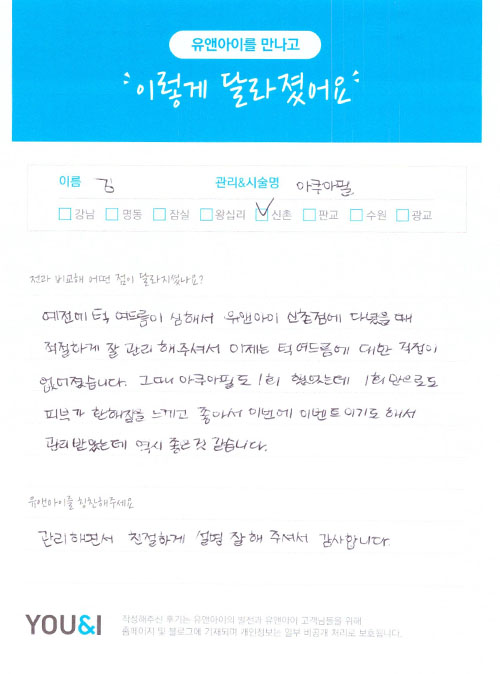 유앤아이를 만나고
이렇게 달라졌어요
이름 김 관리&시술명 아쿠아필
강남 명동 잠실 왕십리 신촌 판교 수원 광교
전과 비교해 어떤 점이 달라지셨나요?
예전에 턱 여드름이 심해서 유앤아이 신촌점에 다녔을 때
적절하게 잘 관리 해주셔서 이제는 턱여드름에 대한 걱정이
없어졌습니다. 그때 아쿠아필도 1회 했었는데 1회만으로도
피부가 환해짐을 느끼고 좋아서 이번에 이벤트이기도 해서
관리받았는데 역시 좋은것 같습니다.
유앤아이를 칭찬해주세요
관리하면서 친절하게 설명 잘해 주셔서 감사합니다.
YOU&I
작성해주신 후기는 유앤아이의 발전과 유앤아이 고객님들을 위해
홈페이지 및 블로그에 기재되며 개인정보는 일부 비공개 처리로 보호됩니다.